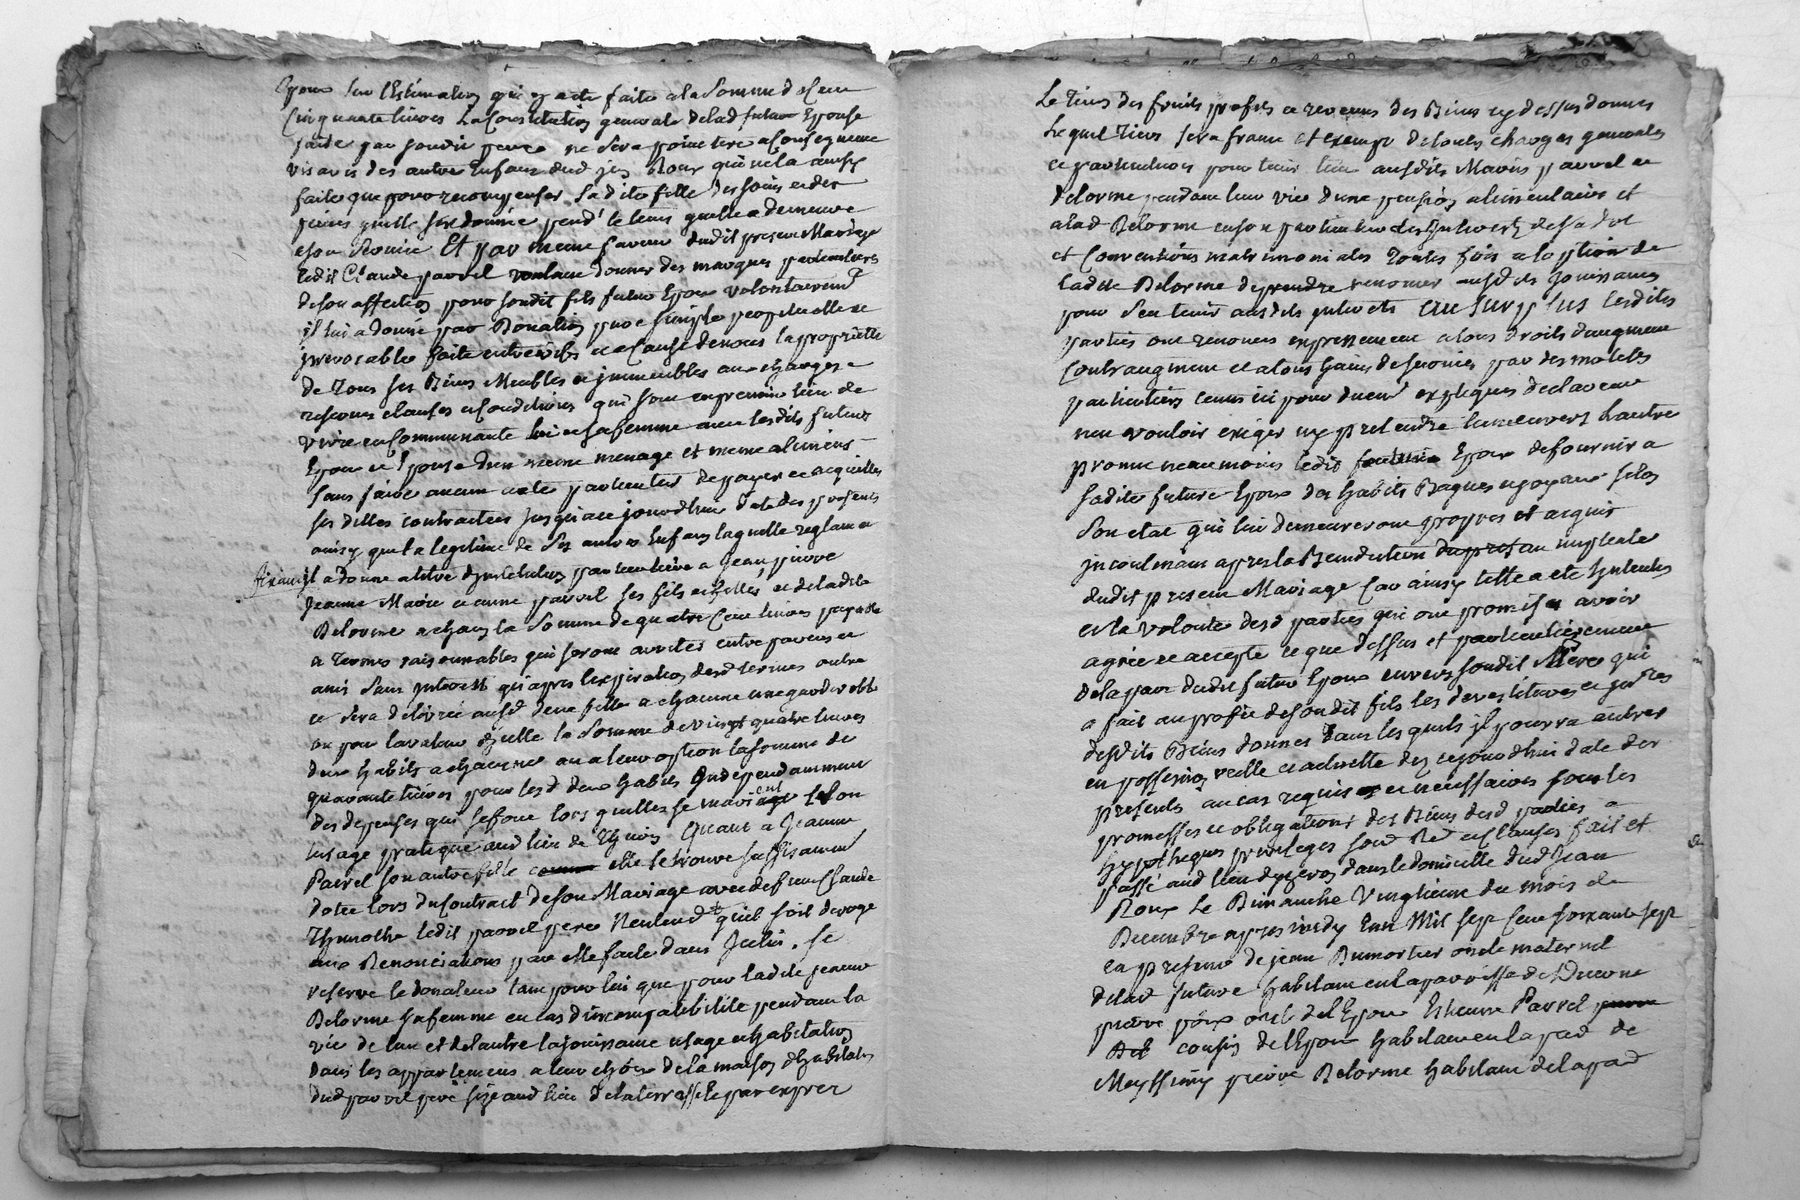 Epoux sur l'Estimation qui en a ete faite a la Somme de Cent
Cinquante livres La Constitution generale de lad future Epouse
faite par son pere ne sera point tiré a Consequence
vis a vis des autres Enfans dud Roux qui ne la ainsy
faite que pour recompenser Sadite fille des soins et des
peines qu'elle s'est donnée pend^t le tems quelle a demeuré
Et par meme faveur dudit present Mariage
ledit Claude payvel voulant donner des marques particulieres
de son affection pour sondit fils futur Epoux volontairem^t
il lui a donné par Donation pure simple perpetuelle et
irrevocable faite entrevifs et a Cause de noces la proprieté
de Tous ses Biens Meubles et immeubles aux charges
reserves clauses et Conditions qui sont expremier lieu de
vivre en Communauté lui et sa femme avec lesdits futurs
Epoux et Epouse d'un meme menage et meme alimens
sans faire aucun acte particulier de payer et acquitter
ses dettes contractées jusqu'a ce jourdhui date des presents
ainsy que la legitime de ses autres Enfans laquelle reglant et
il a donné a titre d'institution particuliere a Jean pierre
Jeanne Marie et anne payvel ses fils et filles et de ladite
Delorme a chacun la Somme de quatre Cent livres payable
a Termes raisonnables qui seront arretés entre parens et
amis Sans interets qu'apres l'expiration desd termes outre
ce sera delivré ausd deux filles a chacune une garderobbe
ou pour la valeur d'icelle la Somme de vingt quatre livres
deux habits a chacune ou a leur option la somme de
quarante livres pour lesd deux habits Independamment
des depenses qui se font lors qu'elles se marient selon
lusage pratiqué aud lieu de Quant a Jeanne
Payvel son autre fille elle se trouve suffisament
dotée lors du Contract de son Mariage avec defunt Claude
Thimothe ledit payvel pere qu'il soit derogé
aux Renonciations par elle faites dans Icelui. se
reserve le donateur tant pour lui que pour ladite Jeanne
Delorme sa femme en cas d'incompatibilité pendant la
vie de l'un et de l'autre la jouissance usage et habitation
dans les appartemens a leur choix de la maison d'habitation
dud payvel pere size aud lieu de la terrasse et par exprez
Le Tiers des fruits profits et revenus des Biens cy dessus donnes
Lequel Tiers sera franc et exempt de toutes charges generales
et particulieres pour tenir lieu ausdits Mariés payvel et
Delorme pendant leur vie d'une pension alimentaire et
a lad Delorme en son particulier des Interets de sa dot
et Conventions matrimoniales Toutes fois a loption de
ladite Delorme de prendre renoncer ausdites jouissances
pour s'en tenir ausdits interets Au Surplus lesdites
parties ont renoncé expressement a tous droits d'augment
Contraugment et a tous gains de survie par des motifs
particuliers tenus ici pour duem^t expliqués declarent
nen vouloir exiger ny pretendre l'un envers Lautre
promet neanmoins ledit Epoux de fournir a
sadite future Epouse des habits Bagues et joyaux selon
Son etat qui lui demeureront propres et acquis
incontinant apres la Benediction nuptiale
dudit present Mariage Car ainsy telle a eté l'intention
et la volonté desd parties qui ont promis avoir
agrée et accepté ce que Dessus et particulierement
de la part dudit futur Epoux envers sondit Pere qui
a fait au profit de sondit fils les devestitures
desdits Biens donnes dans lesquels il pourra entrer
en possession reelle et actuelle dez cejourdhui date des
presents au cas requis et necessaires sous les
promesses et obligations des Biens desd parties
hypotheques privileges soud Ren et clauses fait et
passé aud lieu dans le domicille dud Jean
Roux Le Dimanche Vingtieme du mois de
Decembre apres midy Lan Mil sept Cent soixante sept
en presence de jean Dumortier oncle maternel
de lad future habitant en la paroisse de
pierre oncle de l'Epoux Estienne Payvel
Dit cousin de l'Epoux habitant en la par de
Meyssimy pierre Delorme habitant de la par